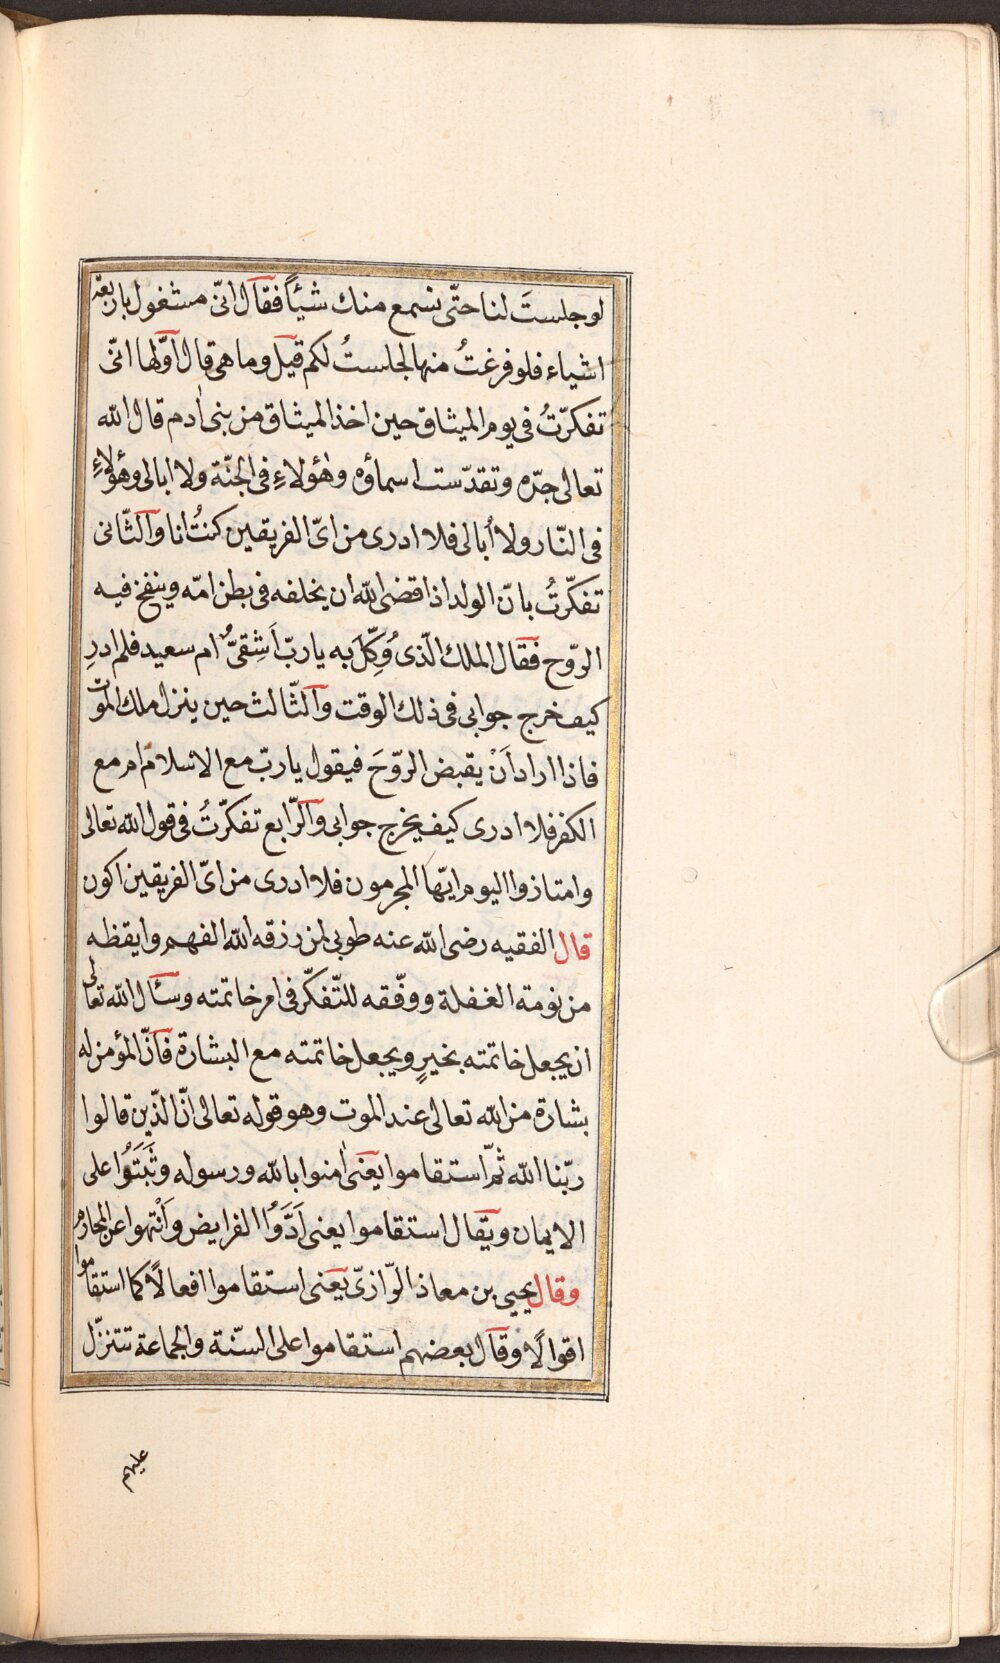 لوجلستَ لنا حتّى نسمع منك شيئاً فقال انّى مشغول باربعة
اشياء فلو فرغتُ منها لجلستُ لكم قيل وما هى قال اوّلها انّى
تفكرّتُ فى يوم الميثاق حين اخذ الميثاق من بنى اٰدم قال الله
تعالى جدّه وتقدّست اسماؤه وهٰؤلاءِ فى الجنّة ولا ابالى وهٰؤلاءِ
فى النّار ولا اُبالى فلا ادرى من اىّ الفريقين كنتُ انا والثّانى
تفكّرتُ بانّ الولد اذا قضى الله ان يخلقه فى بطن امّه وينفخ فيه
الرّوح فقال الملك الّذى وُكِّلَ به يا ربّ اَشِقىٌّ ام سعيد فلم ادرِ
كيف خرج جوابى فى ذلك الوقت والثّالث حين ينزل ملك الموت
فاذا اراد اَنْ يقبض الرّوحَ فيقول يا ربّ مع الاسلام ام مع
الكفر فلا ادرى كيف يخرج جوابى والرّابع تفكّرتُ فى قول الله تعالى
وامتازوا اليوم ايّها المجرمون فلا ادرى من اىّ الفريقين اكون
قال الفقيه رضى الله عنه طوبى لمن رزقه الله الفهم وايقظه
من نومة الغفلة ووفّقه للتّفكّر فى امر خاتمته وسئال الله تعالى
ان يجعل خاتمته بخيرٍ ويجعل خاتمته مع البشارة فانّ المؤمن له
بشارة من الله تعالى عند الموت وهو قوله تعالى انّ الّذين قالوا
ربّنا الله ثمّ استقاموا يعنى اٰمنوا بالله ورسوله وثَبَتَوُا على
الايمان ويقال استقاموا يعنى اَدَّوُا الفرايض وانْتهوا عن المحارم
وقال يحيى بن معاذ الرّازىّ يعنى استقاموا افعالًا كما استقاموا
اقوالًا وقال بعضهم استقاموا على السّنة والجماعة تتنزّل
عليهم